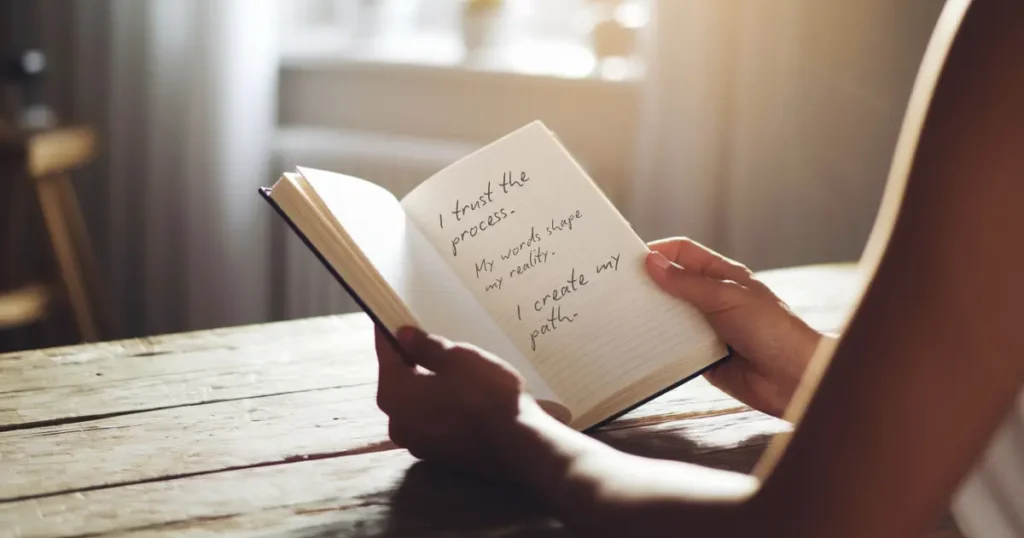 I trust the
process.
My words shape
my reality.
I create my
path.